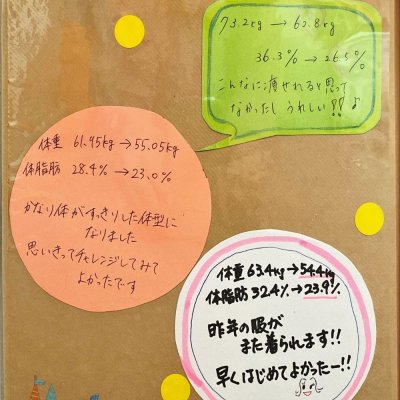 73.2kg → 63.8kg
36.3% → 26.5%
こんなに痩せれると思って
なかったし うれしい!!♪
体重 61.45kg → 55.05kg
体脂肪 28.4% → 23.0%
かなり体がすっきりした体型に
なりました
思いきってチャレンジしてみて
よかったです
体重 63.4kg → 54.4kg
体脂肪 32.4% → 23.9%
昨年の服が
また着られます!!
早くはじめてよかったー!!